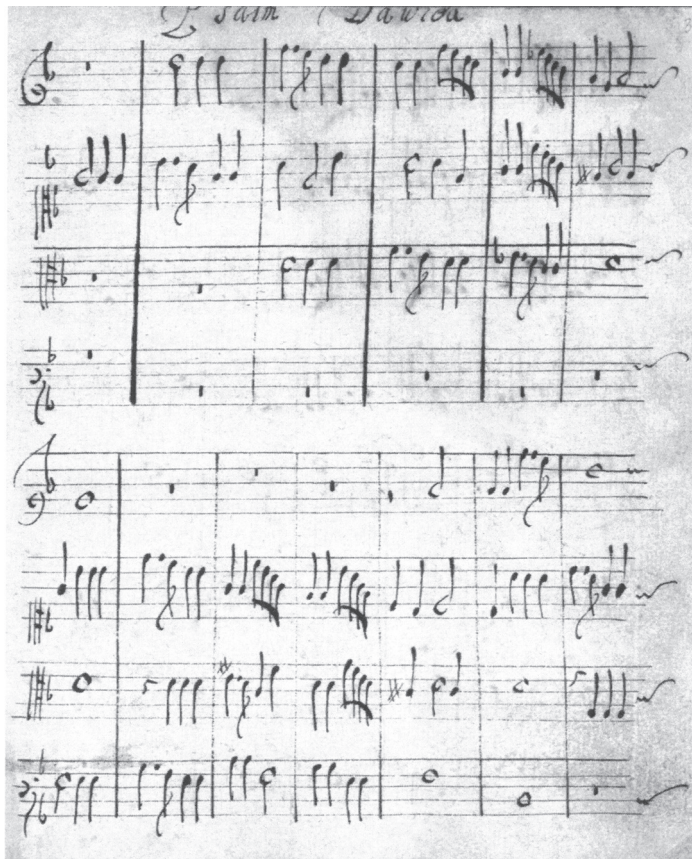 Psalm Dawida